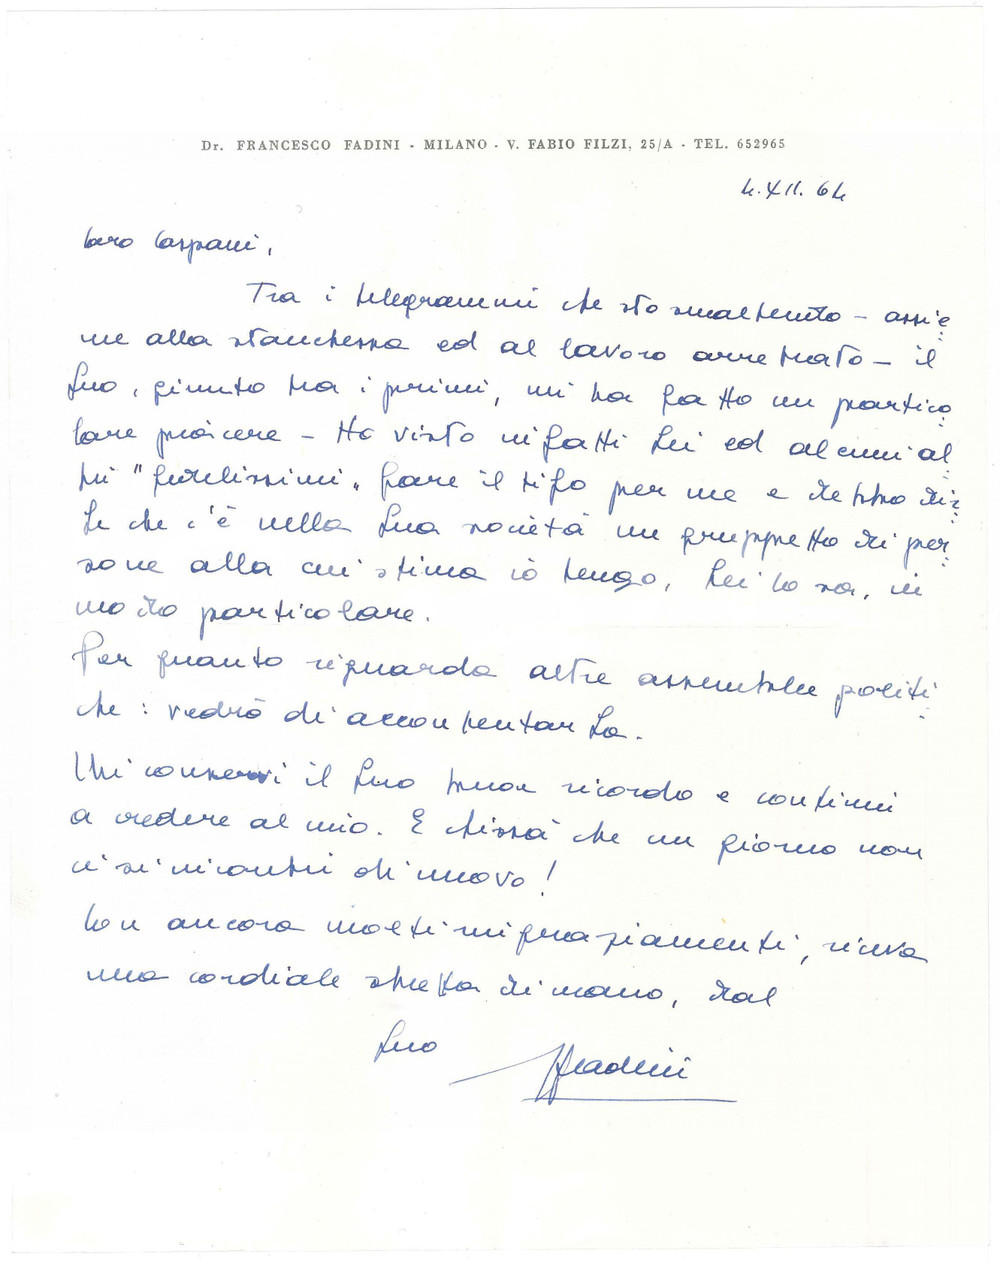 Dr. FRANCESCO FADINI - MILANO - V. FABIO FILZI, 25/A - TEL. 652965
4.XII.64
Caro Caspani,
Tra i telegrammi che sto smaltendo - assie
me alla stanchezza ed al lavoro arretrato - il
Suo, giunto tra i primi, mi ha fatto un partico
lare piacere - Ho visto infatti Lei ed alcuni al
tri "fedelissimi" fare il tifo per me e debbo dir
Le che c'è nella Sua società un gruppetto di per
sone alla cui stima io tengo, Lei lo sa, in
modo particolare.
Per quanto riguarda altre assemblee politi
che: vedrò di accontentarLa.
Mi conservi il Suo buon ricordo e continui
a credere al mio. E chissà che un giorno non
ci si incontri di nuovo!
Con ancora molti ringraziamenti, riceva
una cordiale stretta di mano, dal
Suo FFadini